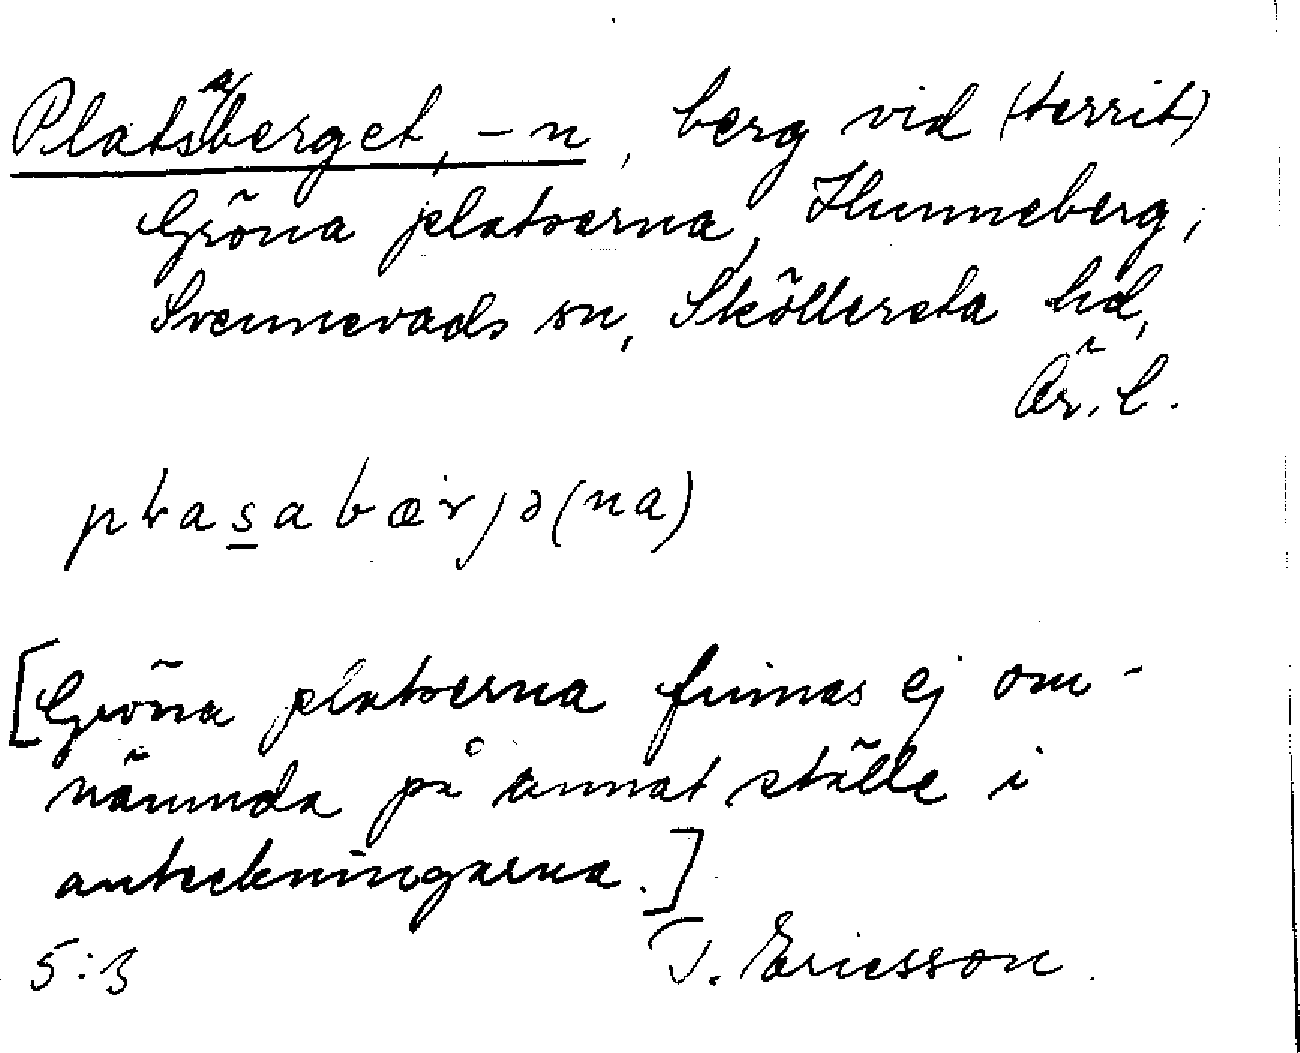 Platsaberget, -n, berg vid (territ)
Gröna platserna, Hunneberg,
Svennevads sn, Sköllersta hd,
Ör. l.
plasabærjə(na)
[Gröna platserna finnas ej om-
nämnda på annat ställe i
anteckningarna.]
5:3 J. Ericsson